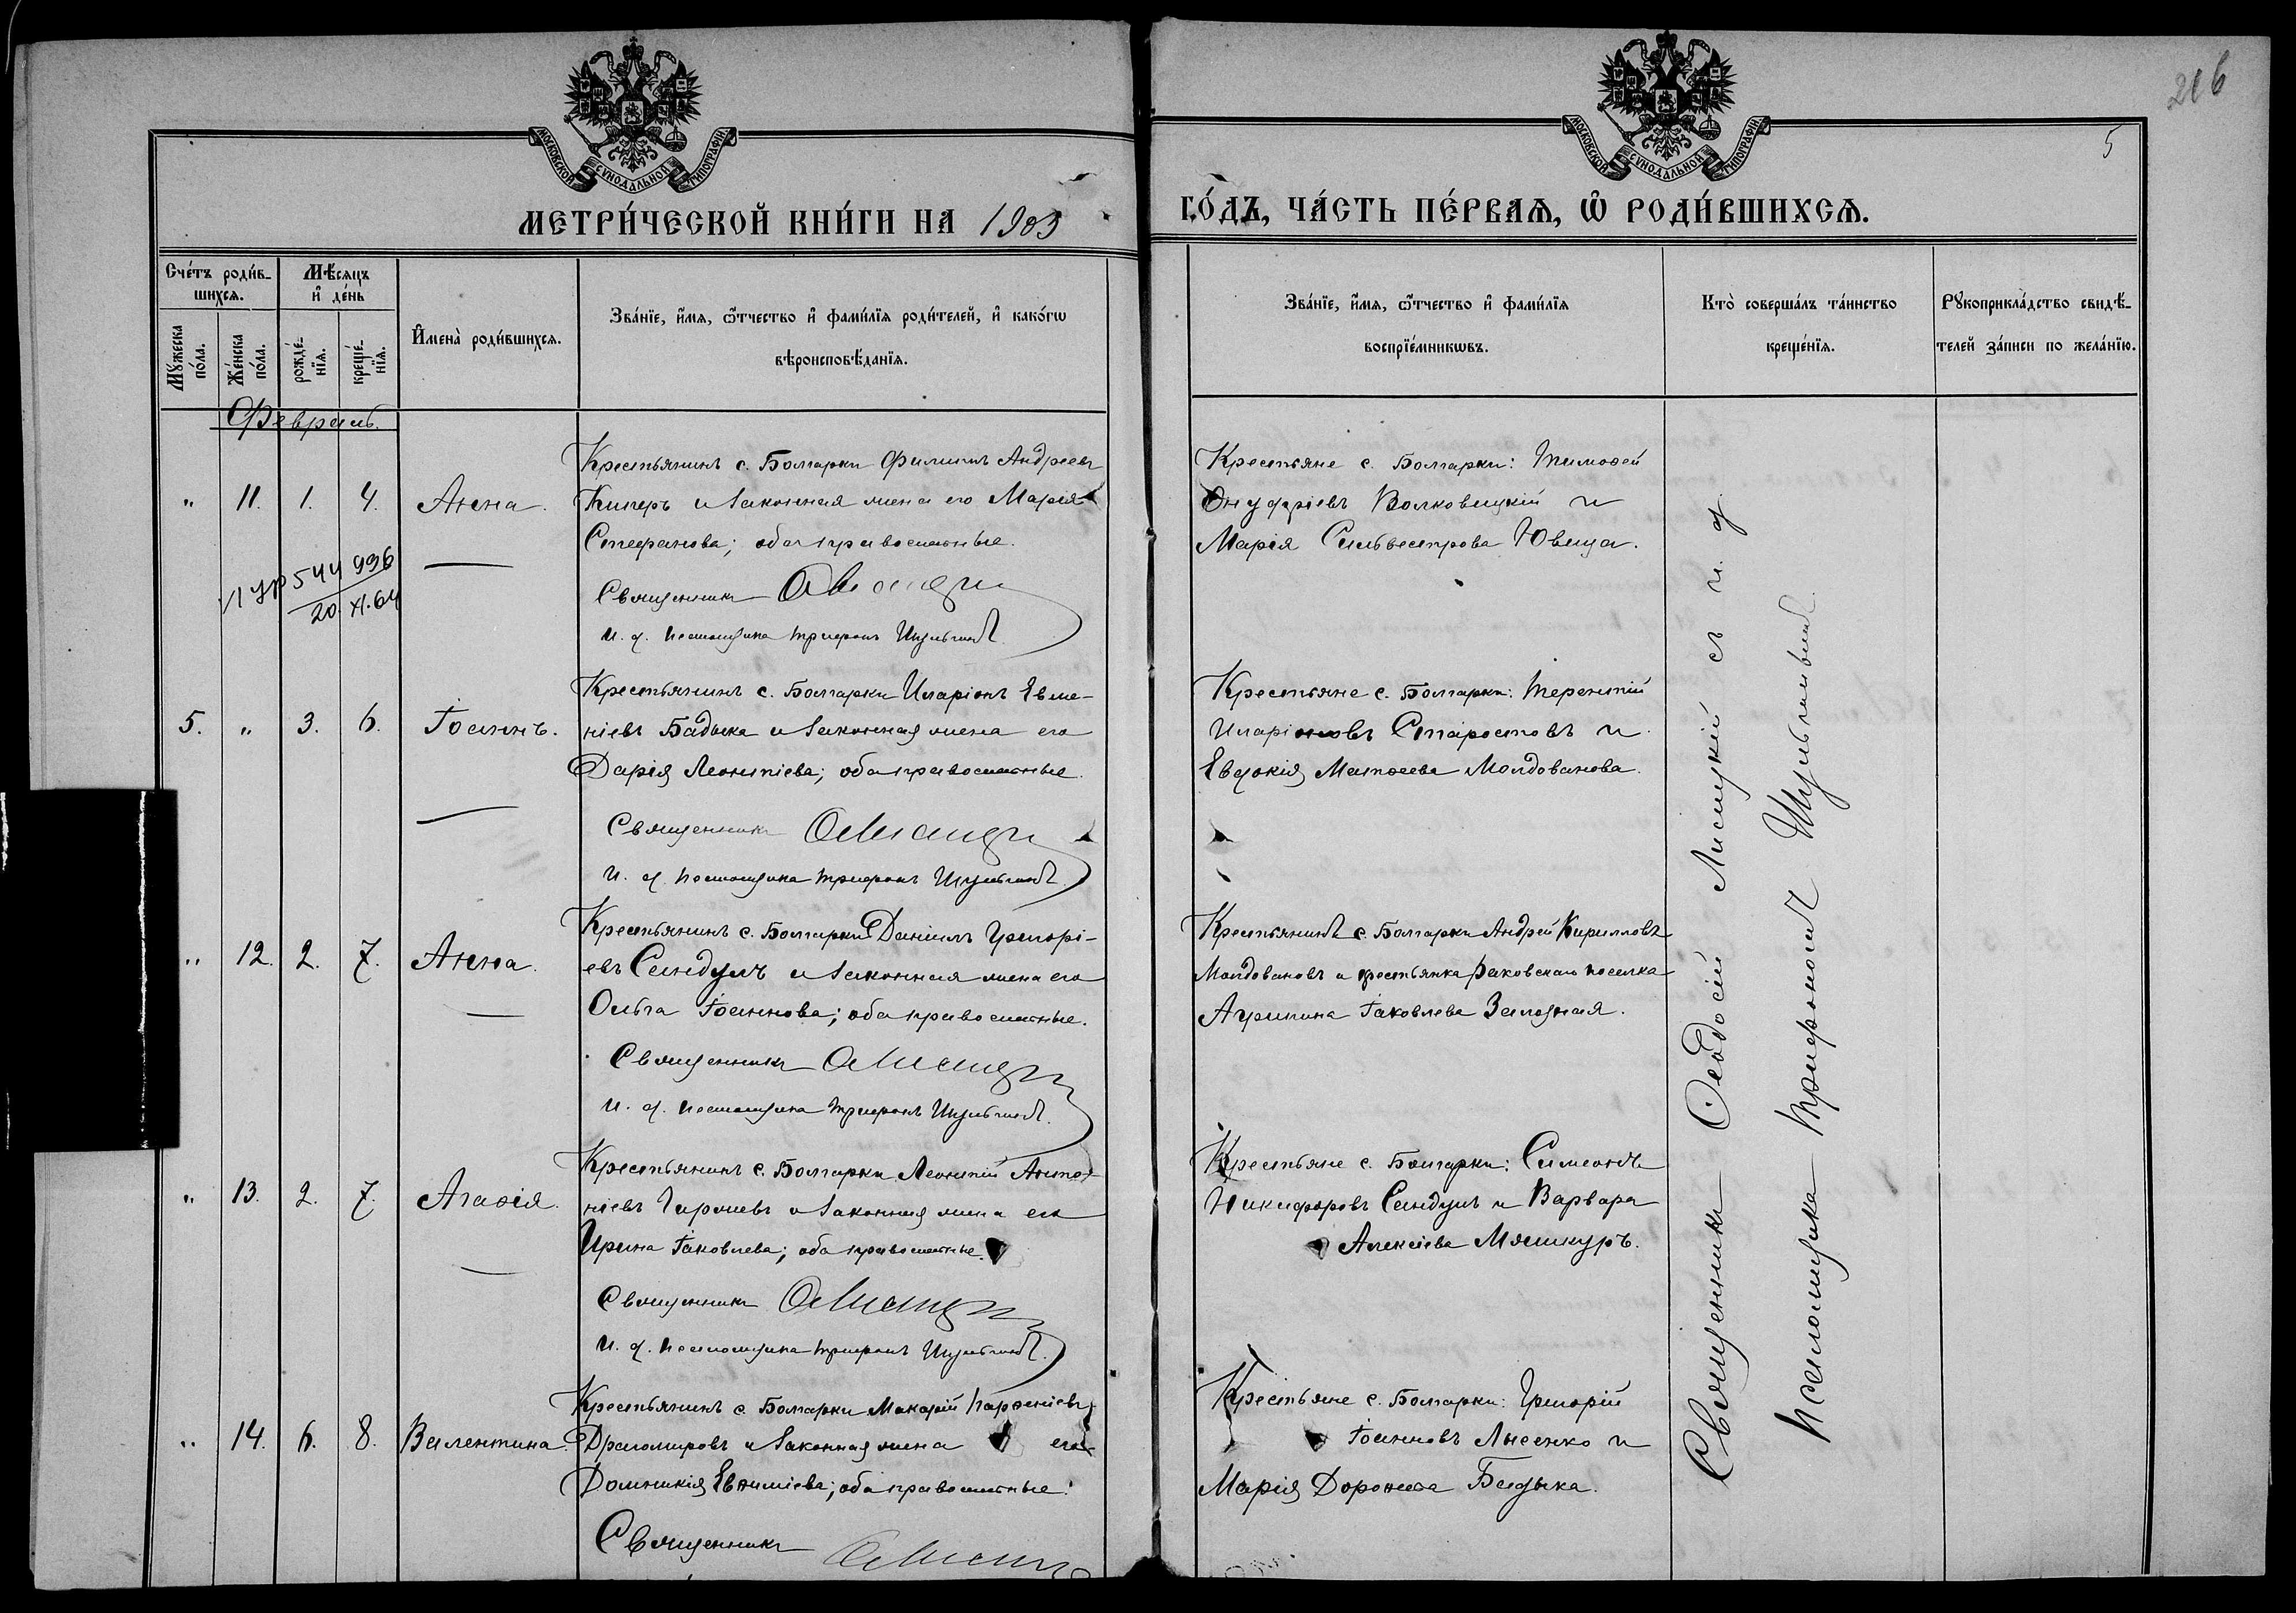 216
5
МОСКОВСКОЙ СѴНОДАЛЬНОЙ ТИПОГРАФІИ
МОСКОВСКОЙ СѴНОДАЛЬНОЙ ТИПОГРАФІИ
МЕТРИ́ЧЕСКОЙ КНИ́ГИ НА 1903 ГО́ДЪ, ЧА́СТЬ ПЕ́РВАѦ, Ѡ҆ РОДИ́ВШИХСѦ.
Сче́тъ роди́в-
шихсѧ.
Мꙋжеска по́ла.
Же́нска по́ла.
Мѣ́сѧцъ
и҆ де́нь
рожде́-нїѧ.
креще́-нїѧ.
И҆мена̀ роди́вшихсѧ.
Зва́нїе, и҆́мѧ, ѻ҆́тчество и҆ фами́лїѧ роди́телей, и҆ како́гѡ
вѣроисповѣ́данїѧ.
Зва́нїе, и҆́мѧ, ѻ҆́тчество и҆ фами́лїѧ
воспрїе́мникѡвъ.
Кто̀ соверша́лъ та́инство
креще́нїѧ.
Рꙋкоприкла́дство свидѣ́-
телей за́писи по жела́нїю.
Февраль.
" 11. 1. 4. Анна.
Крестьянинъ с. Болгарки Филиппъ Андреевъ
Киперъ и законная жена его Марія
Стефанова; оба православные.
Священникъ
И. д. псаломщика Трифонъ Шульгинъ
Крестьяне с. Болгарки: Тимоѳей
Онуфріевъ Волковицкій и
Марія Сильвестрова Ювица.
544 996
20. XI. 64
5. " 3. 6. Іоаннъ.
Крестьянинъ с. Болгарки Иларіонъ Евме-
ніевъ Бадыка и законная жена его
Дарія Леонтіева; оба православные.
Священникъ
И. д. псаломщика Трифонъ Шульгинъ
Крестьяне с. Болгарки: Терентій
Иларіоновъ Старостовъ и
Евдокія Матѳеева Молдованова.
" 12. 2. 7. Анна.
Крестьянинъ с. Болгарки Даніилъ Григорі-
евъ Сандулъ и законная жена его
Ольга Іоаннова; оба православные.
Священникъ
И. д. псаломщика Трифонъ Шульгинъ.
Крестьянинъ с. Болгарки Андрей Кирилловъ
Молдовановъ и крестьянка Раковскаго поселка
Агрипина Іаковлева Заложная.
" 13. 2. 7. Агаѳія.
Крестьянинъ с. Болгарки Леонтій Анто-
ніевъ и законная жена его
Ирина Іаковлева; оба православные.
Священникъ
И. д. псаломщика Трифонъ Шульгинъ.
Крестьяне с. Болгарки: Симеонъ
Никифоровъ Сандулъ и Варвара
Алексіева Мяшкуръ.
" 14. 6. 8. Валентина.
Крестьянинъ с. Болгарки Макарій Парѳеніевъ
Драгомировъ и законная жена его
Домникія Евѳиміева; оба православные.
Священникъ
Крестьяне с. Болгарки: Григорій
Іоанновъ Лысенко и
Марія Дороѳеева Бадыка.
Священникъ Ѳеодосій Лисицкій съ и. д.
псаломщика Трифономъ Шульгинымъ.